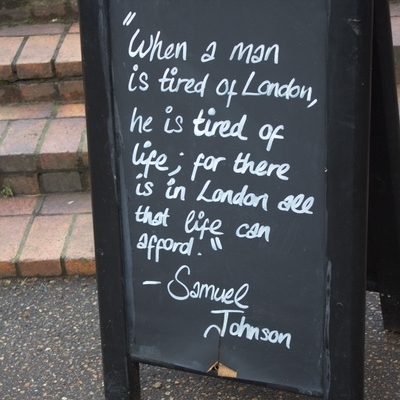 "When a man
is tired of London,
he is tired of
life; for there
is in London all
that life can
afford."
- Samuel
Johnson